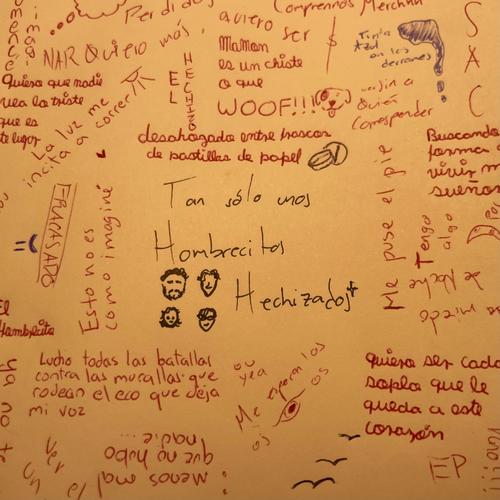 Perdidos
quiero ser
Comprennos Merchan
NAR Quiero más,
Maman
es un chiste
o que
WOOF!!!
EL
HECHIZO
$
Tinta
Azul
en los
derrames
...sin a
Quién
Corresponder
S
A
C
quiero que nadie
vea lo triste
que es
te lugar
La luz me
incita a correr
desahogado entre frascos
de pastillas de papel
Buscando
forma
vivir m
sueños
FRACASADO
=(
Esto no es
como imaginé
Tan sólo unos
Hombrecitos
Hechizados
Me puse el pie
Tengo
algo
miedo
de Noche
El
Hombrecito
Lucho todas las batallas
contra las murallas que
rodean el eco que deja
mi voz
ou
yea
Me esperan los
quiero ser cada
sopla que le
queda a este
corazón
menos mal
que no hubo
nadie...
Un
EP